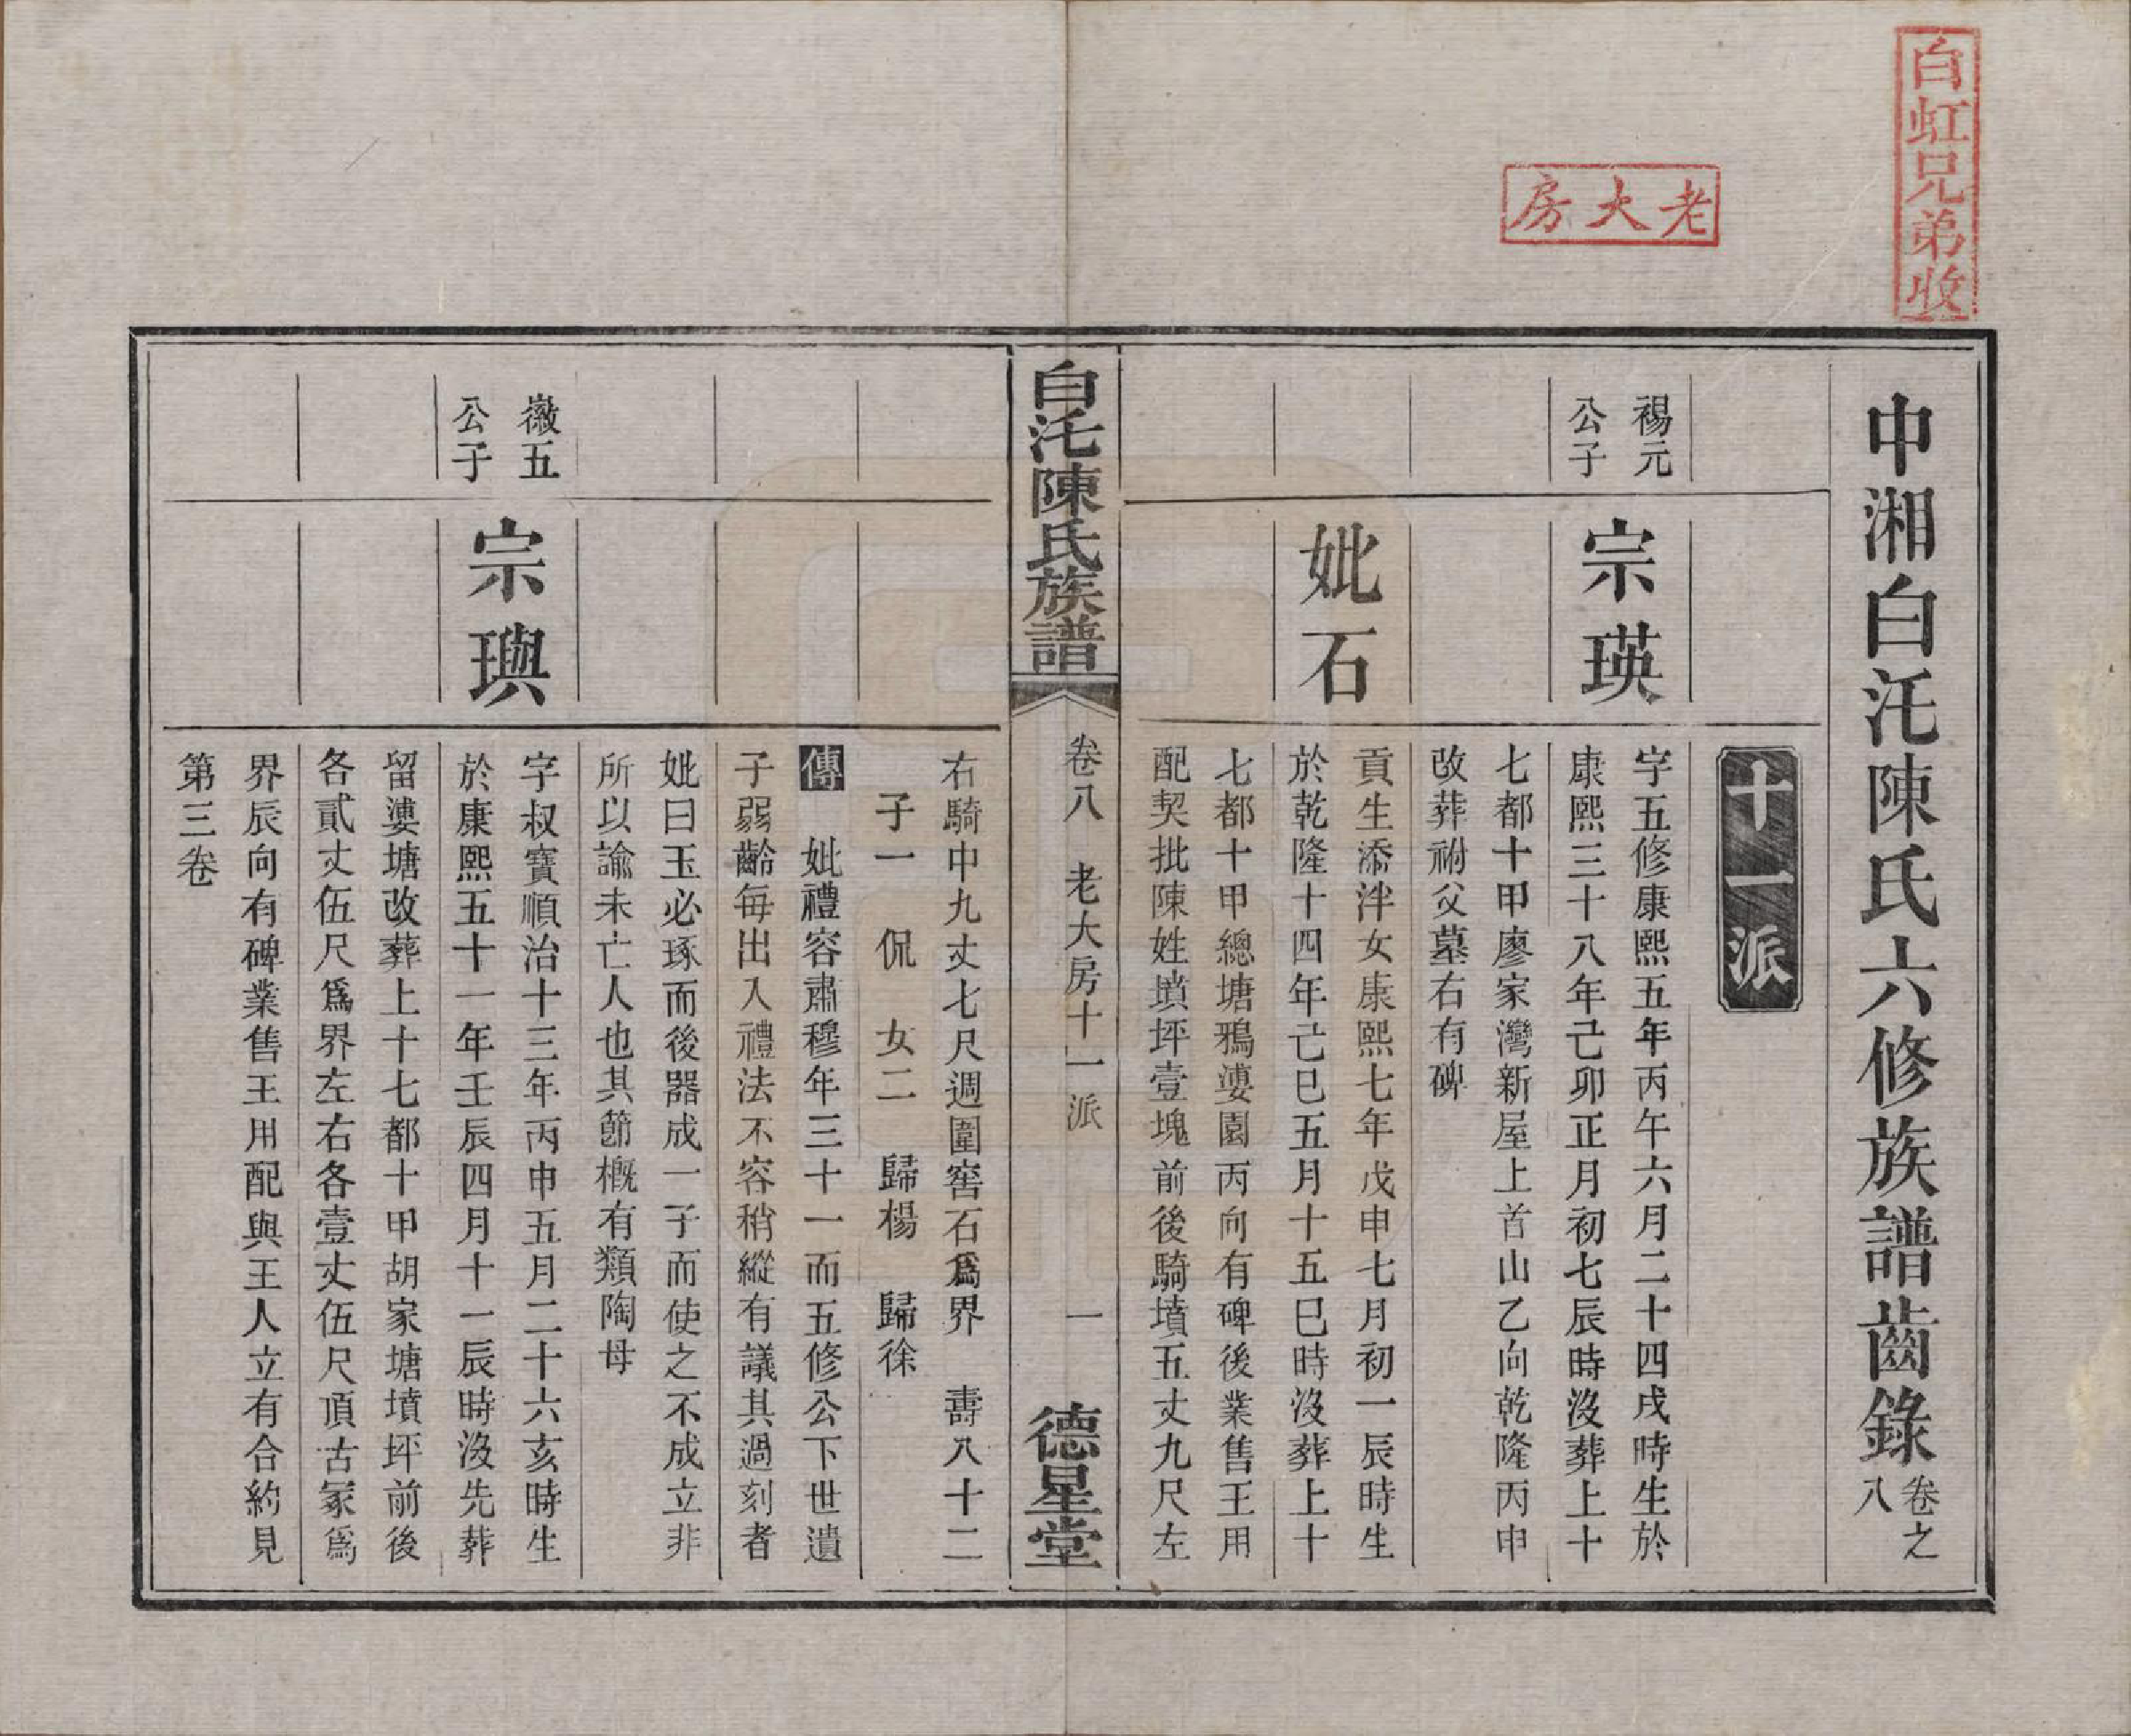 白虹兄弟收
老大房
中湘白汑陳氏六修族譜齒錄卷之八
十一派
禓元公子
宗瑛
字五修康熙五年丙午六月二十四戌時生於
康熙三十八年己卯正月初七辰時沒葬上十
七都十甲廖家灣新屋上首山乙向乾隆丙申
改葬祔父墓右有碑
妣石
貢生添泮女康熙七年戊申七月初一辰時生
於乾隆十四年己巳五月十五巳時沒葬上十
七都十甲總塘鴉漊園丙向有碑後業售王用
配契批陳姓墳坪壹塊前後騎墳五丈九尺左
白汑陳氏族譜
卷八 老大房十一派 一
德星堂
右騎中九丈七尺週圍窖石爲界 壽八十二
子一 侃 女二 歸楊 歸徐
傳 妣禮容肅穆年三十一而五修公下世遺
子弱齡每出入禮法不容稍縱有議其過刻者
妣曰玉必琢而後器成一子而使之不成立非
所以諭未亡人也其節概有類陶母
徽五公子
宗璵
字叔寶順治十三年丙申五月二十六亥時生
於康熙五十一年壬辰四月十一辰時沒先葬
留漊塘改葬上十七都十甲胡家塘墳坪前後
各貳丈伍尺爲界左右各壹丈伍尺頂古冢爲
界辰向有碑業售王用配與王人立有合約見
第三卷